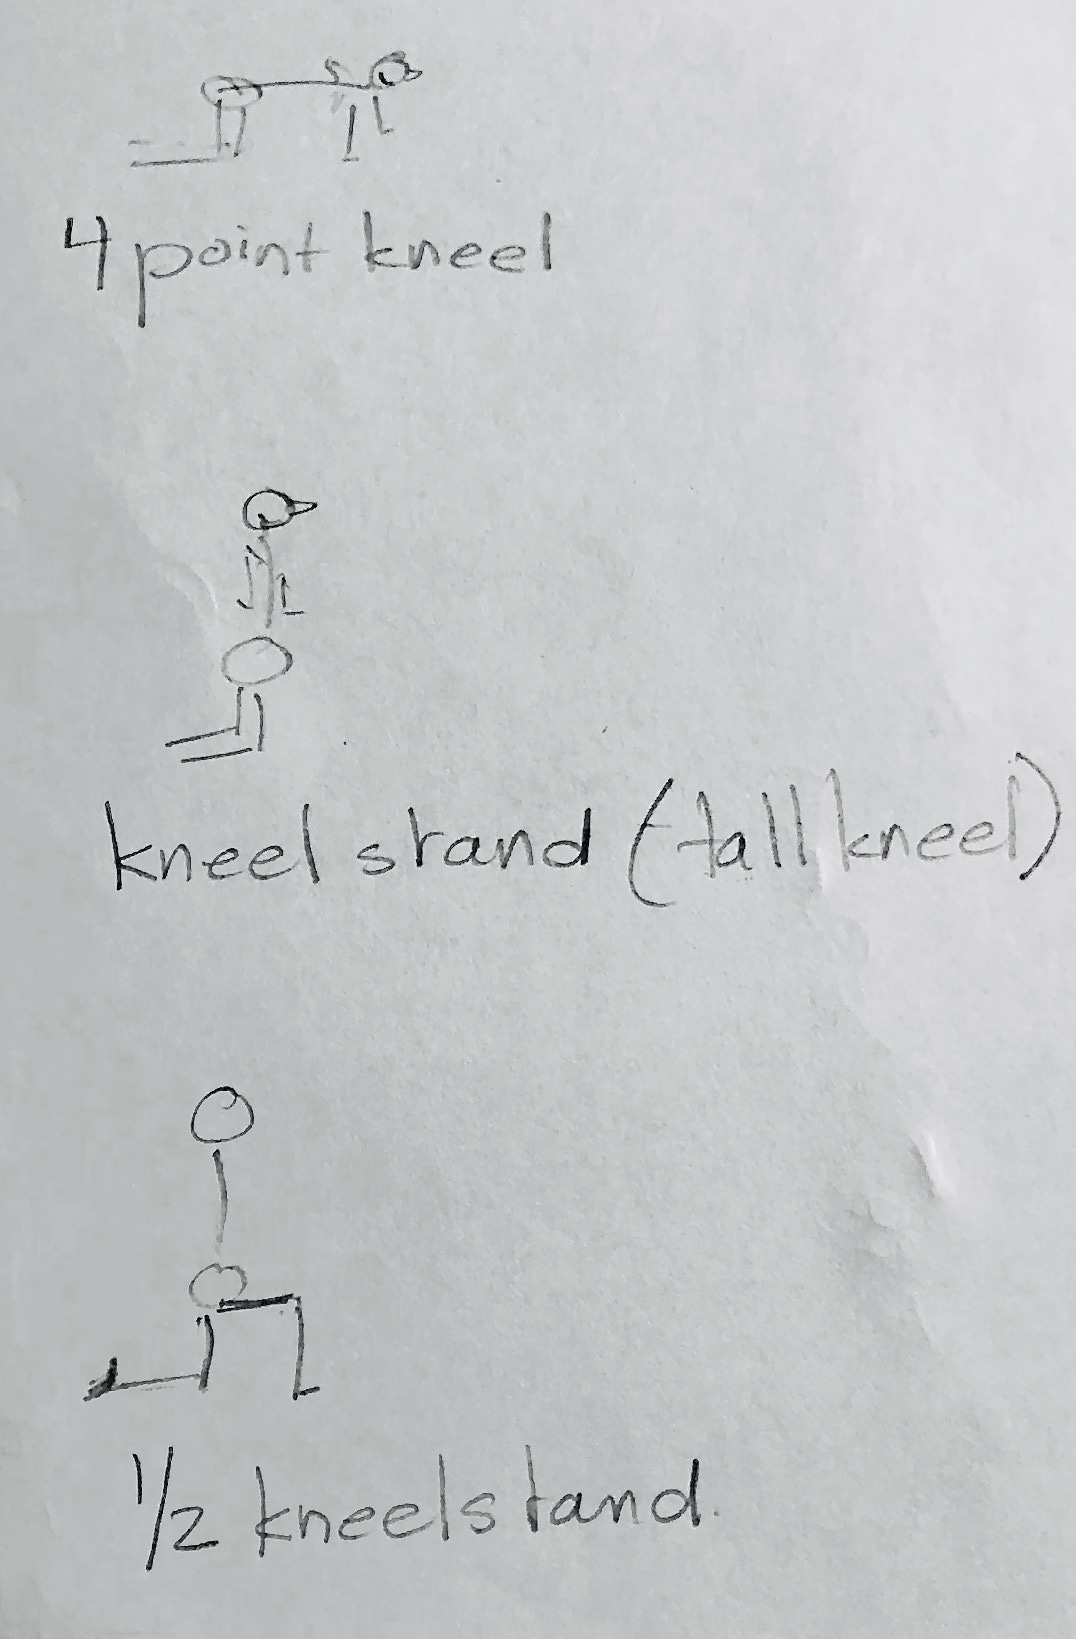 4 point kneel
kneel stand (tall kneel)
1/2 kneelstand.